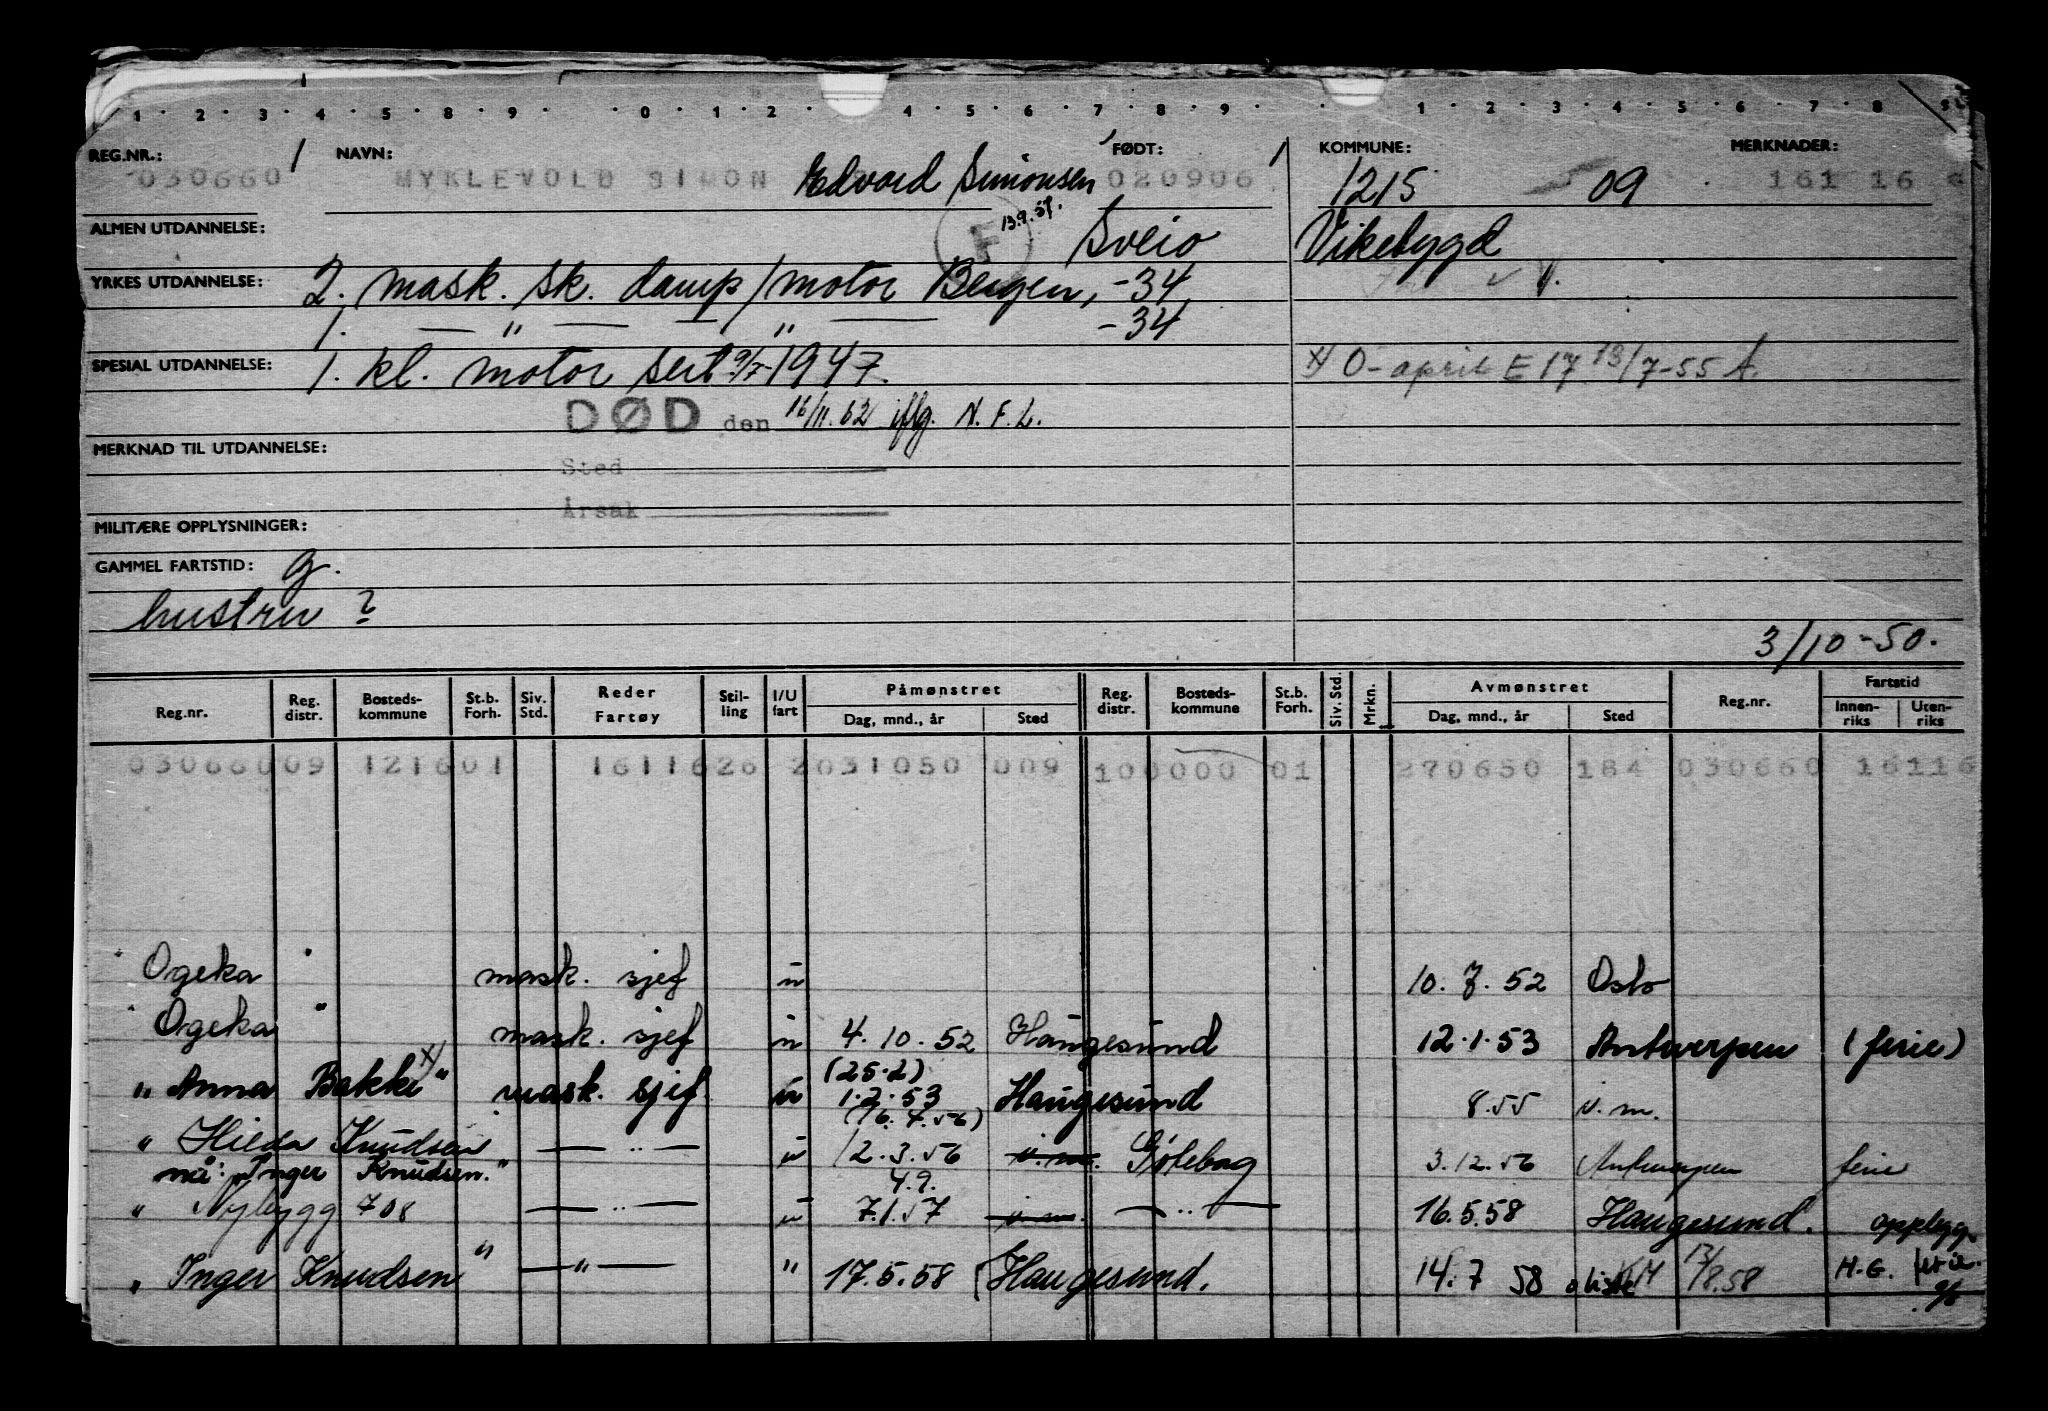 1 2 3 4 5 8 9 0 1 2 4 5 6 7 8 9 1 2 3 4 5 6 7 8 9
REG.NR.: NAVN: FØDT: KOMMUNE: MERKNADER:
030660 MYKLEVOLD SIMON Edvard Simonsen 020906 1215 09 161 16
13.9.57.
F
ALMEN UTDANNELSE: Sveio Vikebygd
YRKES UTDANNELSE: 2. mask. sk. damp/motor Bergen, -34
1. — " — — " — -34
SPESIAL UTDANNELSE: 1. kl. motor sert 9/7-1947. x) O-april E 17 13/7-55 A.
DØD den 16/11.62 iflg. N.F.L.
MERKNAD TIL UTDANNELSE:
Sted
Årsak
MILITÆRE OPPLYSNINGER:
GAMMEL FARTSTID: g.
hustru ?
3/10-50.
Reg.nr. Reg. distr. Bosteds-kommune St.b. Forh. Siv. Std. Reder Fartøy Stil-ling I/U fart Påmønstret Dag, mnd., år Sted Reg. distr. Bosteds-kommune St.b. Forh. Siv. Std. Mrkn. Avmønstret Dag, mnd., år Sted Reg.nr. Fartstid Innen-riks Uten-riks
03066009 121601 1611626 2031050 009 100000 01 270650 184 030660 16116
"Ogeka" mask. sjef u 10.7.52 Oslo
"Ogeka" mask. sjef u 4.10.52 Haugesund 12.1.53 Antwerpen (ferie)
(25.2)
"Anna Bakke" x) mask. sjef u 1.2.53 Haugesund 8.55 u.m.
(16.4.56)
"Hilda Knudsen — " — u 12.3.56 u.m. Göteborg 3.12.56 Antwerpen ferie
nå: "Inger Knudsen." 4.9.
" Nybygg 708 — " — u 7.1.57 u.m. — " — 16.5.58 Haugesund. oppbygg.
"Inger Knudsen" — " — " 17.5.58 Haugesund. 14.7 58 13/8.58 H.G. ferie.